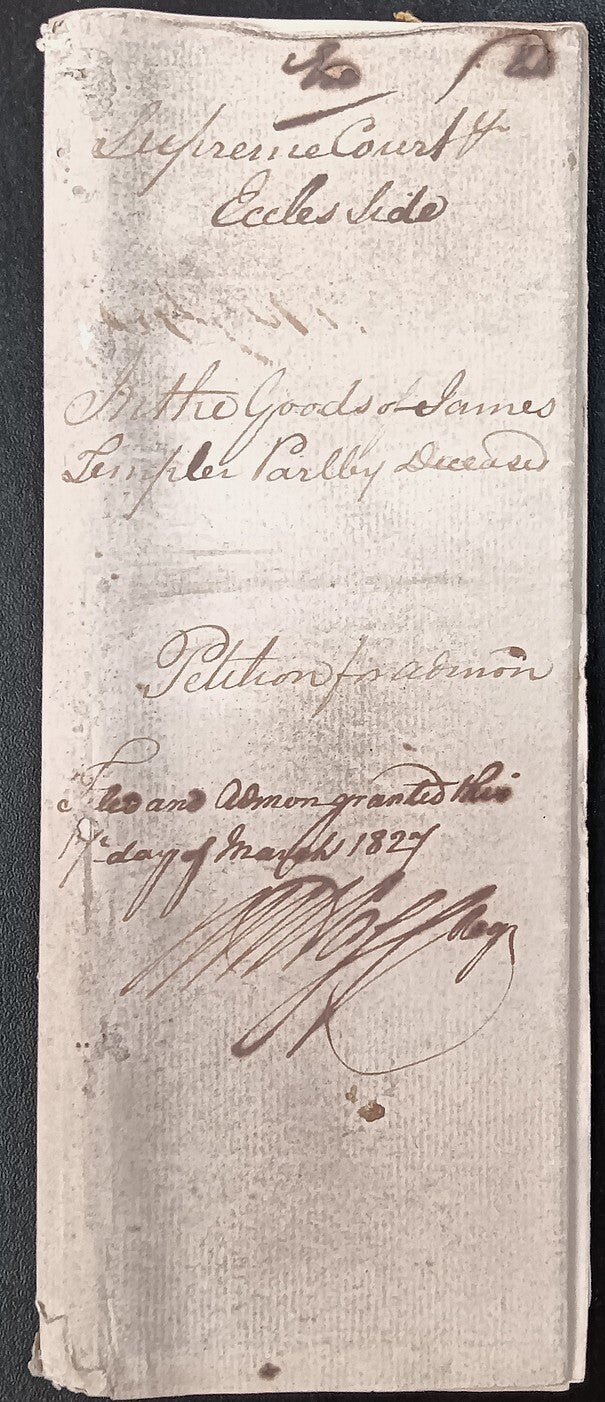 Supreme Court
Eccles Side
In the Goods of James
Templer Parlby Deceased
Petition for admon
Filed and admon granted this
day of March 1827
Reg